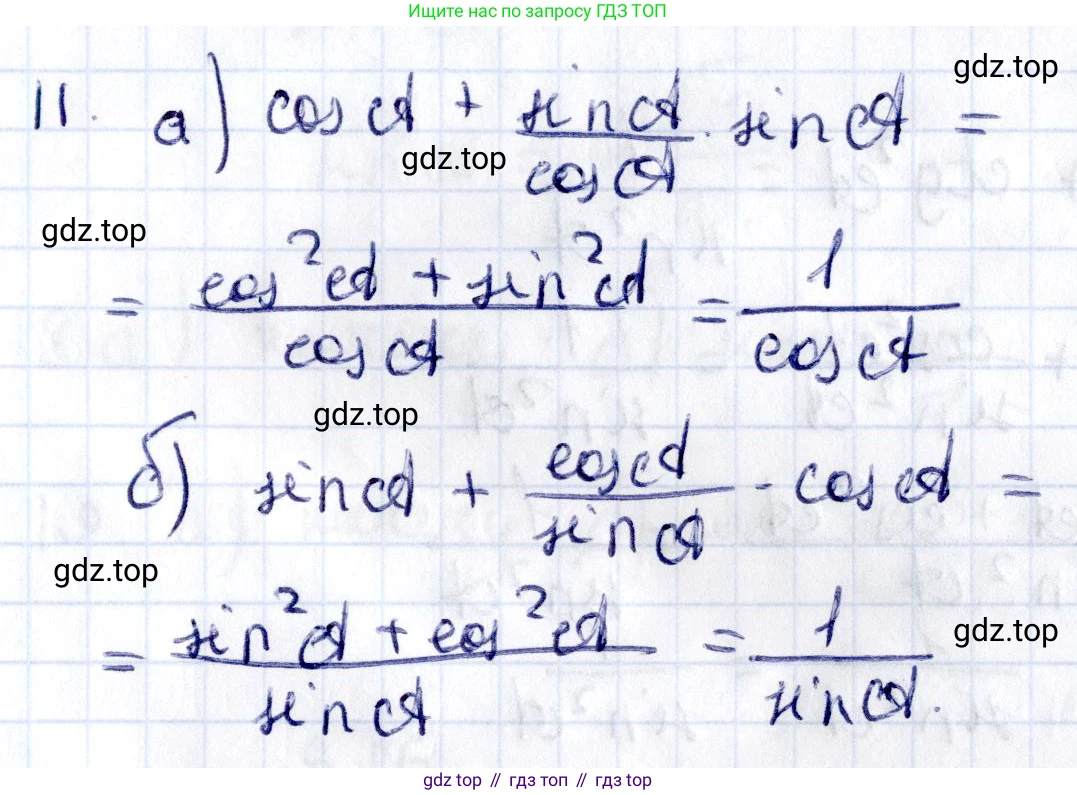 Ищите нас по запросу ГДЗ ТОП
gdz.top
11. а) cos α + sin α / cos α · sin α =
gdz.top
gdz.top
= cos²α + sin²α / cos α = 1 / cos α
gdz.top
б) sin α + cos α / sin α · cos α =
gdz.top
gdz.top
= sin²α + cos²α / sin α = 1 / sin α.
gdz.top // гдз топ // gdz.top